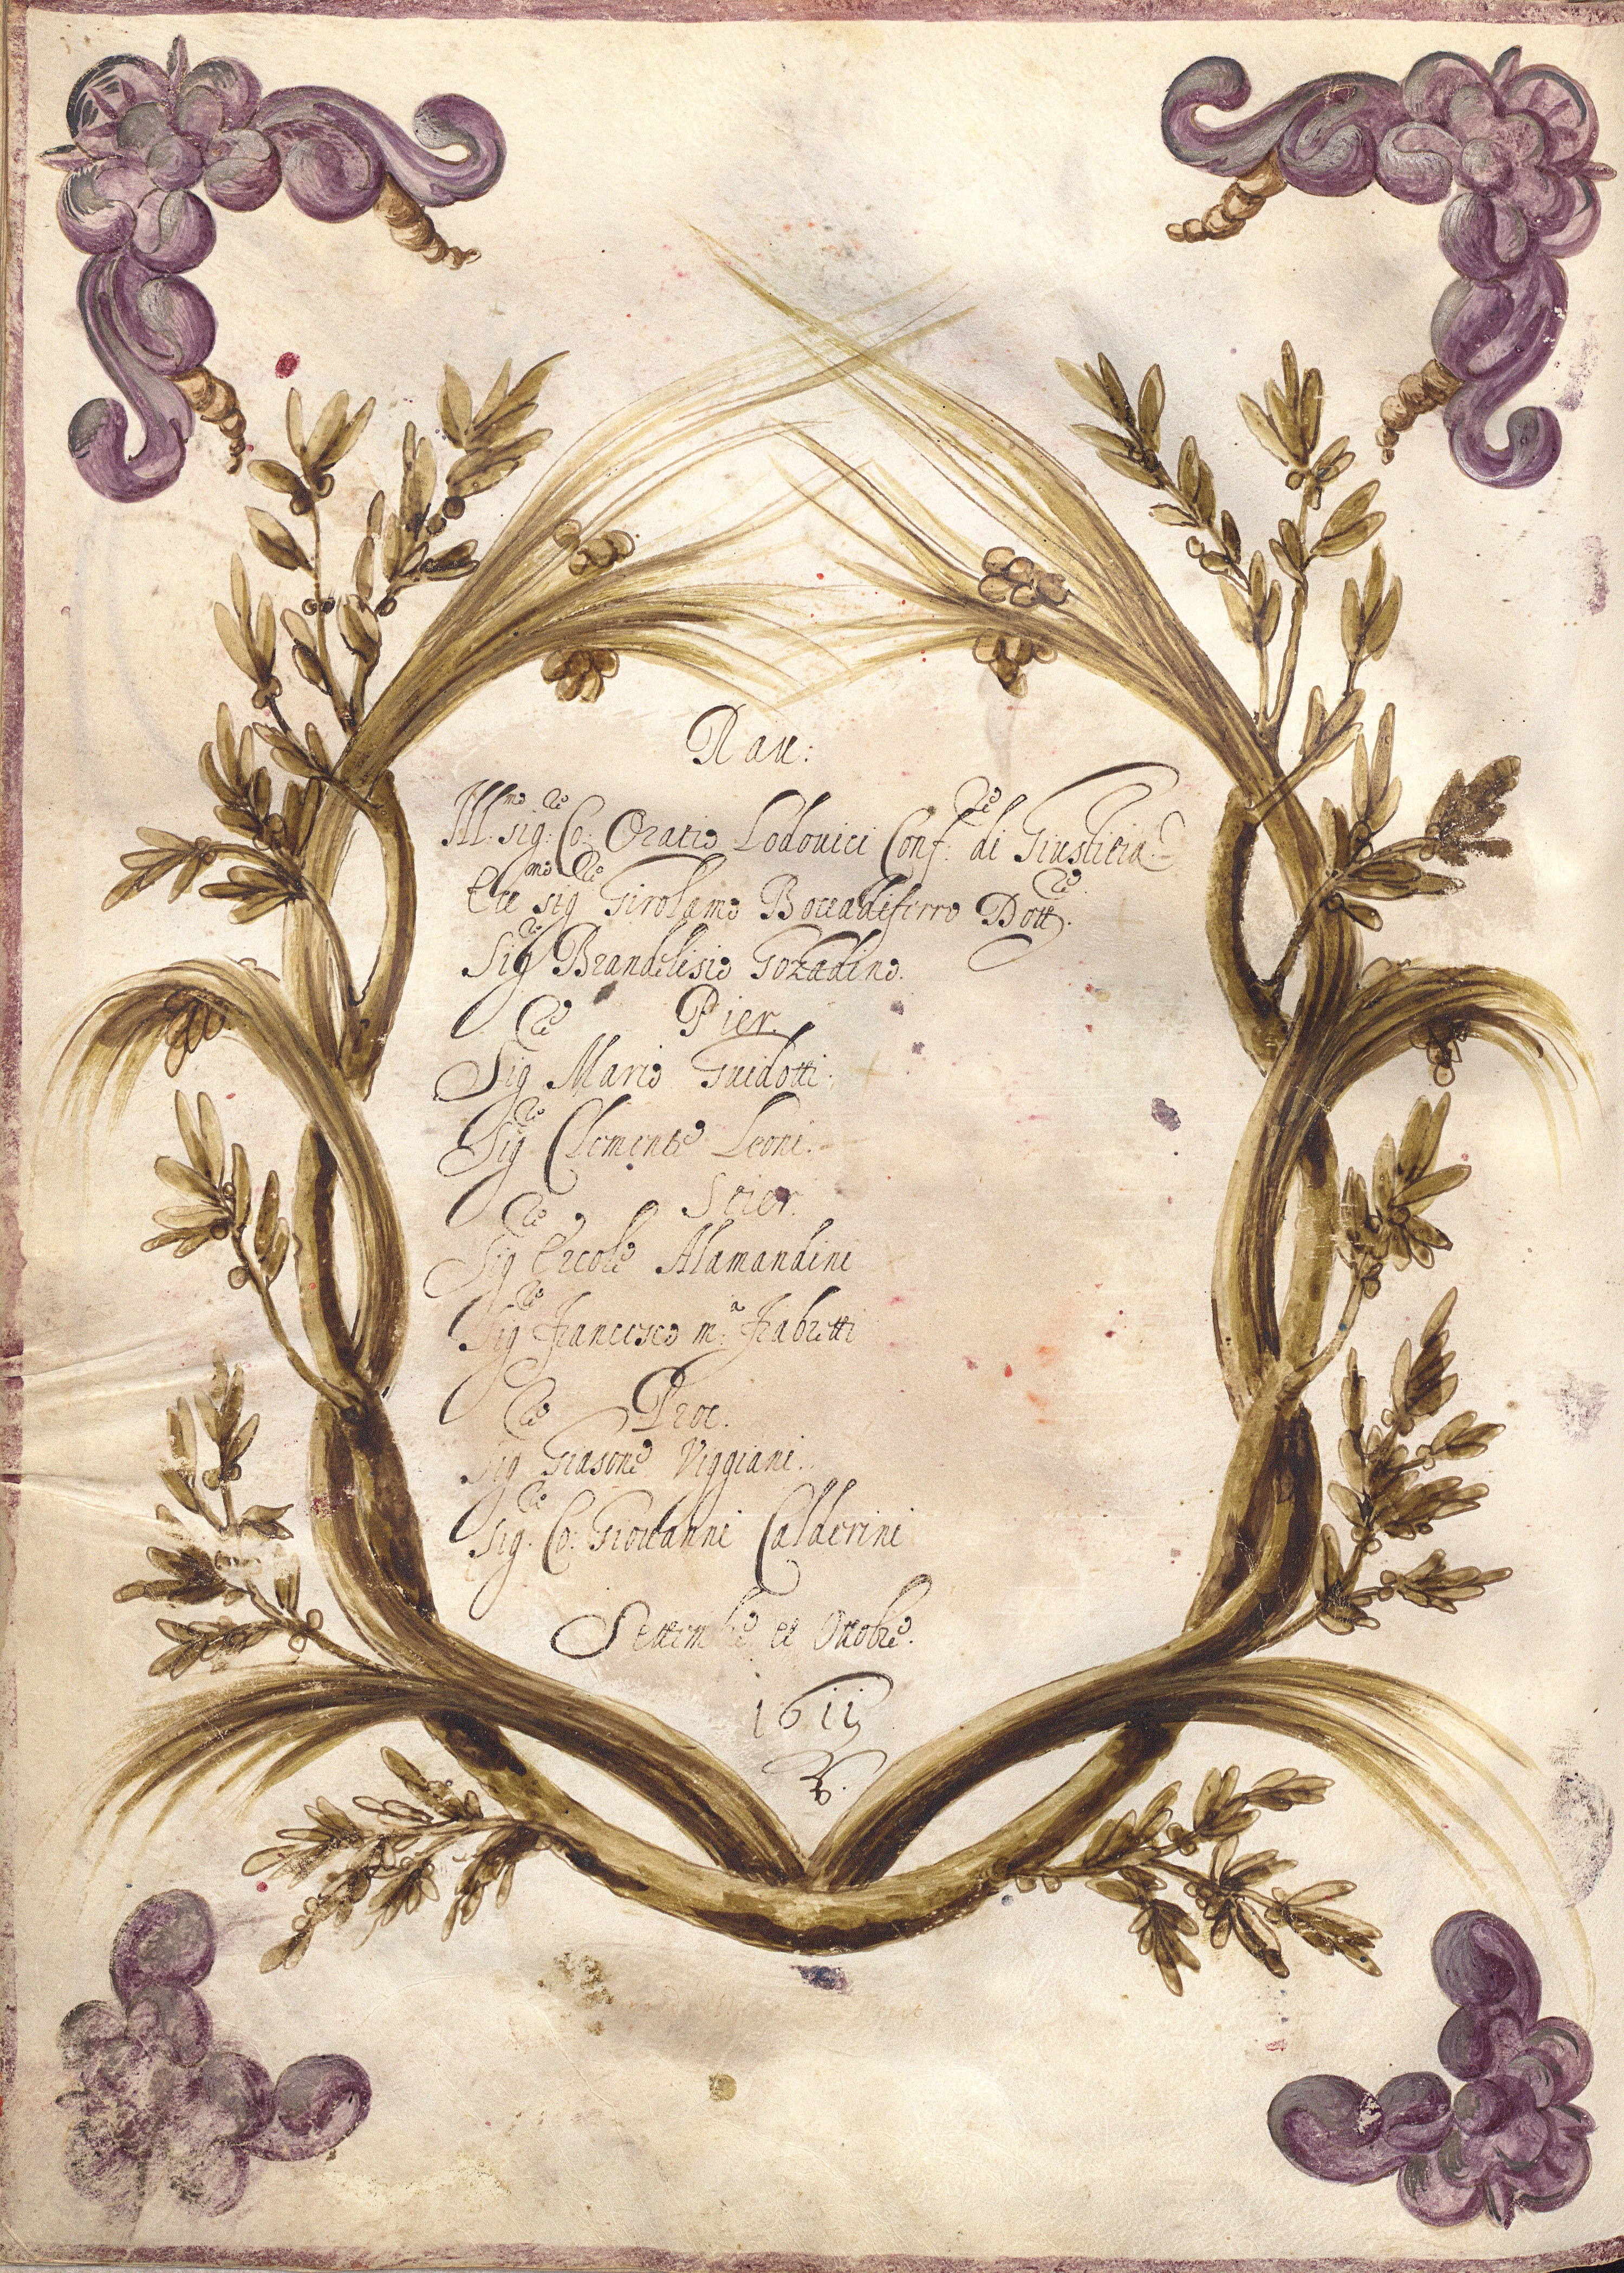 Rau:
Ill.mo sig.re Co: Oratio Lodouici Conf.re di Giustitia
Ecc.mo sig.re Girolamo Boccadiferro Dott.re
Sig.re Brandelisio Gozadino.
Pier.
Sig.re Mario Guidotti.
Sig.re Clemente Leoni.
Stier.
Sig.re Ercole Alamandini
Sig.re Francesco m.a Frabetti
Proc.
Sig.re Giasone Viggiani.
Sig.re Co: Giouanni Calderini
Settembre et Ottobre.